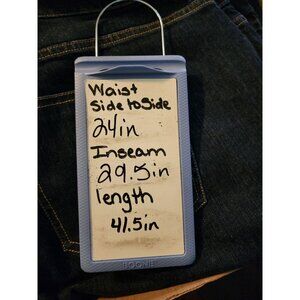 Waist
Side to Side
24in
Inseam
29.5in
length
41.5in
BOONE